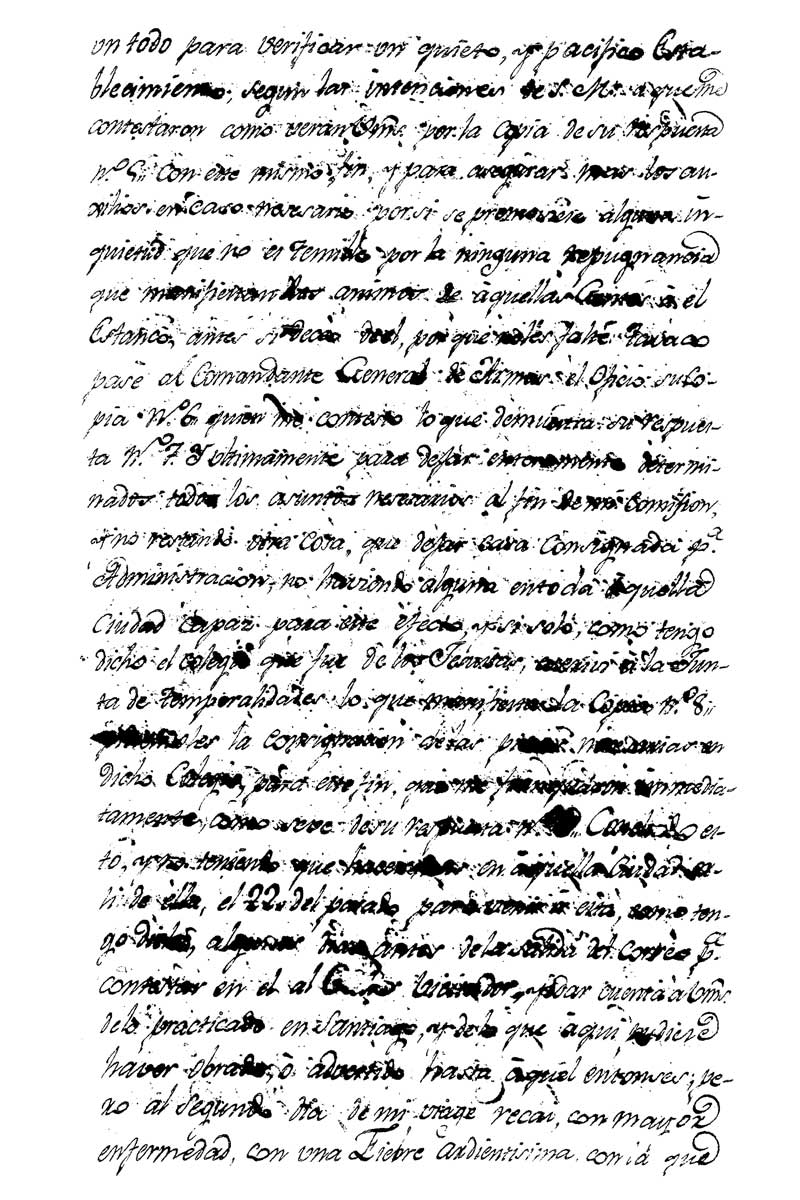 un todo para verificar un quieto, y pacifico Esta-
blecimiento, segun las intenciones de S. M. a que me
contestaron como veran Vms. por la Copia de su respuesta
N.º 5,, Con este mismo fin, y para asegurar mas los au-
xilios en caso nesesario por si se promoviese alguna in-
quietud que no es temible por la ninguna repugnancia
que manifiestan los animos de aquellas Gentes à el
Estanco, antes si deceo del, por que no les falte Tavaco
pasè al Comandante General de Armas el Oficio su Co-
pia N.º 6 quien me contesto lo que demuestra su respues-
ta N.º 7. Y ultimamente para dejar enteramente determi-
nados todos los asuntos nesesarios al fin de mi Comission,
y no restando otra Cosa, que dejar casa Consignada p.ª
Administracion, no haviendo alguna en toda aquella
Ciudad Capaz para este efecto, y si solo, como tengo
dicho el colegio que fue de los Jesuitas, à la Jun-
ta de Temporalidades lo que manifiesta la Copia N.º 8,,
la consignacion de las en
dicho Colegio, para este fin, que me inmedia-
tamente, como se ve de su respuesta N.º es-
tò, y no teniendo que hacer mas en aquella Ciudad sa-
li de ella, el 22 del pasado para venir a esta, como ten-
go dicho, algunas antes de la salida del Correo p.ª
contestar en el al y dar cuenta a Vms.
de lo practicado en Santiago, y de lo que aqui pudiese
haver obrado, ò advertido hasta aquel entonses; pe-
ro al segundo dia de mi viage recai, con mayor
enfermedad, con una Fiebre Ardientisima, con la que